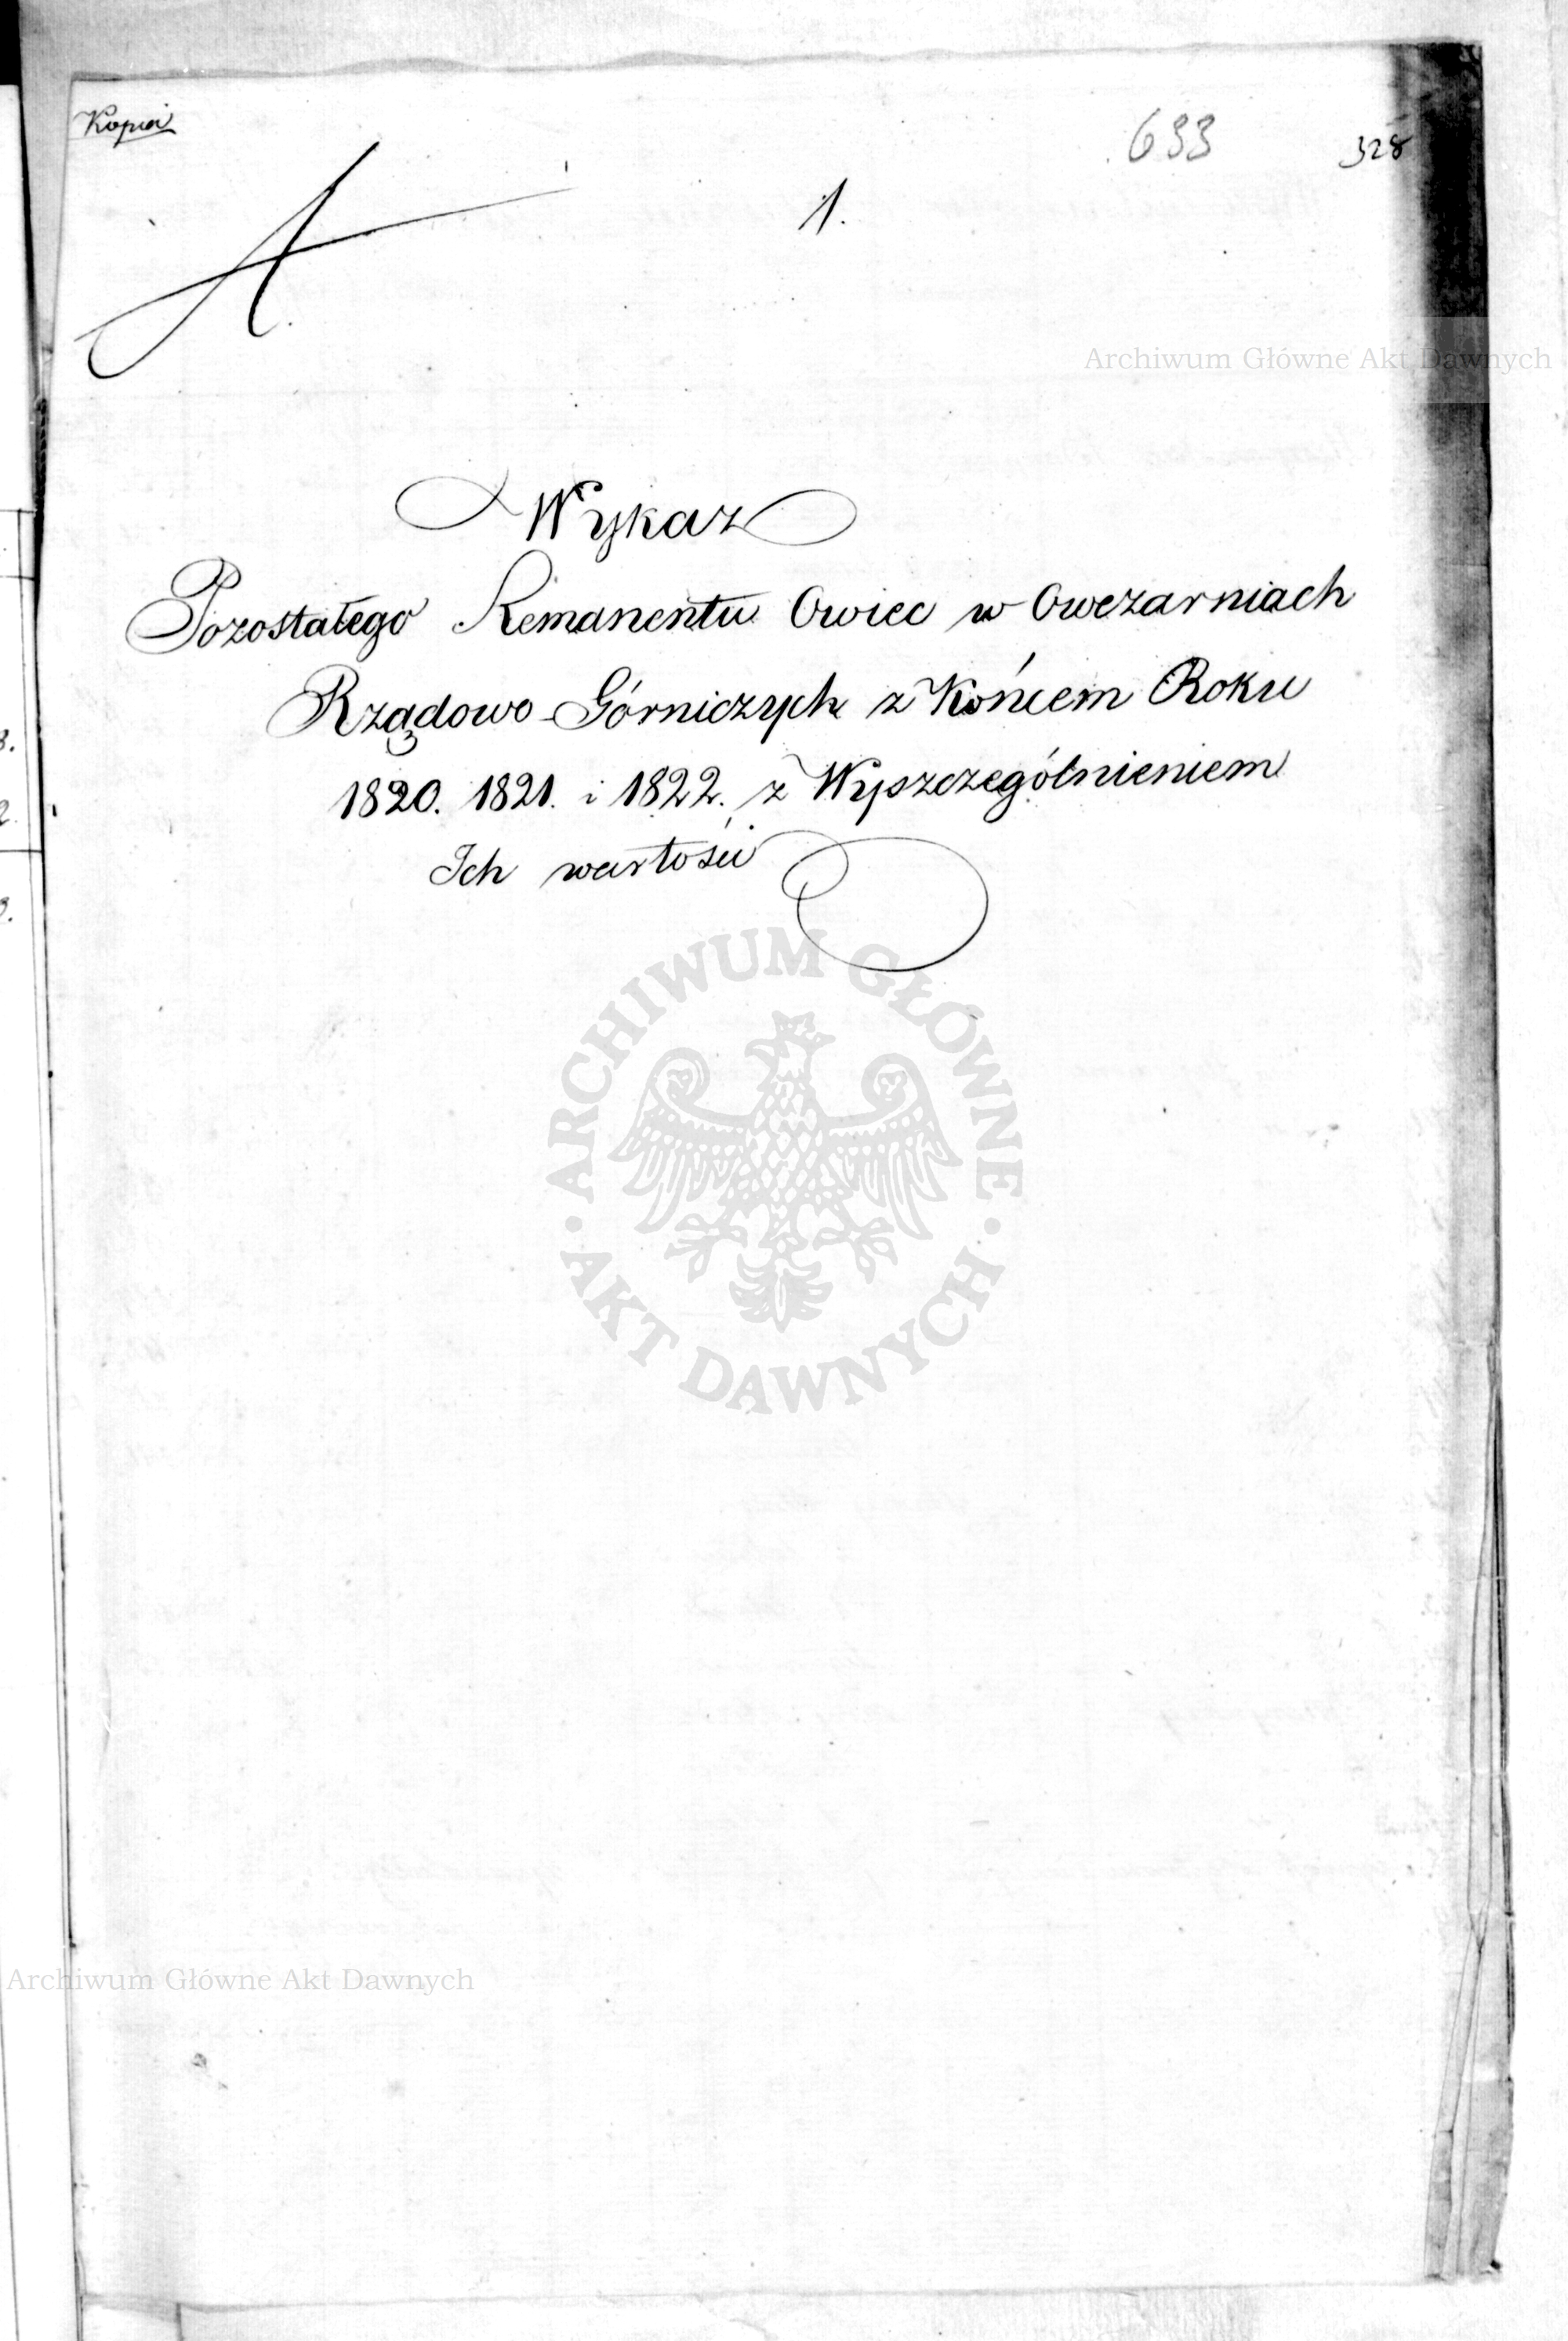 Kopia
633
328
A.
1.
Archiwum Główne Akt Dawnych
Wykaz
Pozostałego Remanentu Owiec w Owczarniach
Rządowo-Górniczych z Końcem Roku
1820. 1821. i 1822. z Wyszczególnieniem
Ich wartości
ARCHIWUM GŁÓWNE
AKT DAWNYCH
Archiwum Główne Akt Dawnych